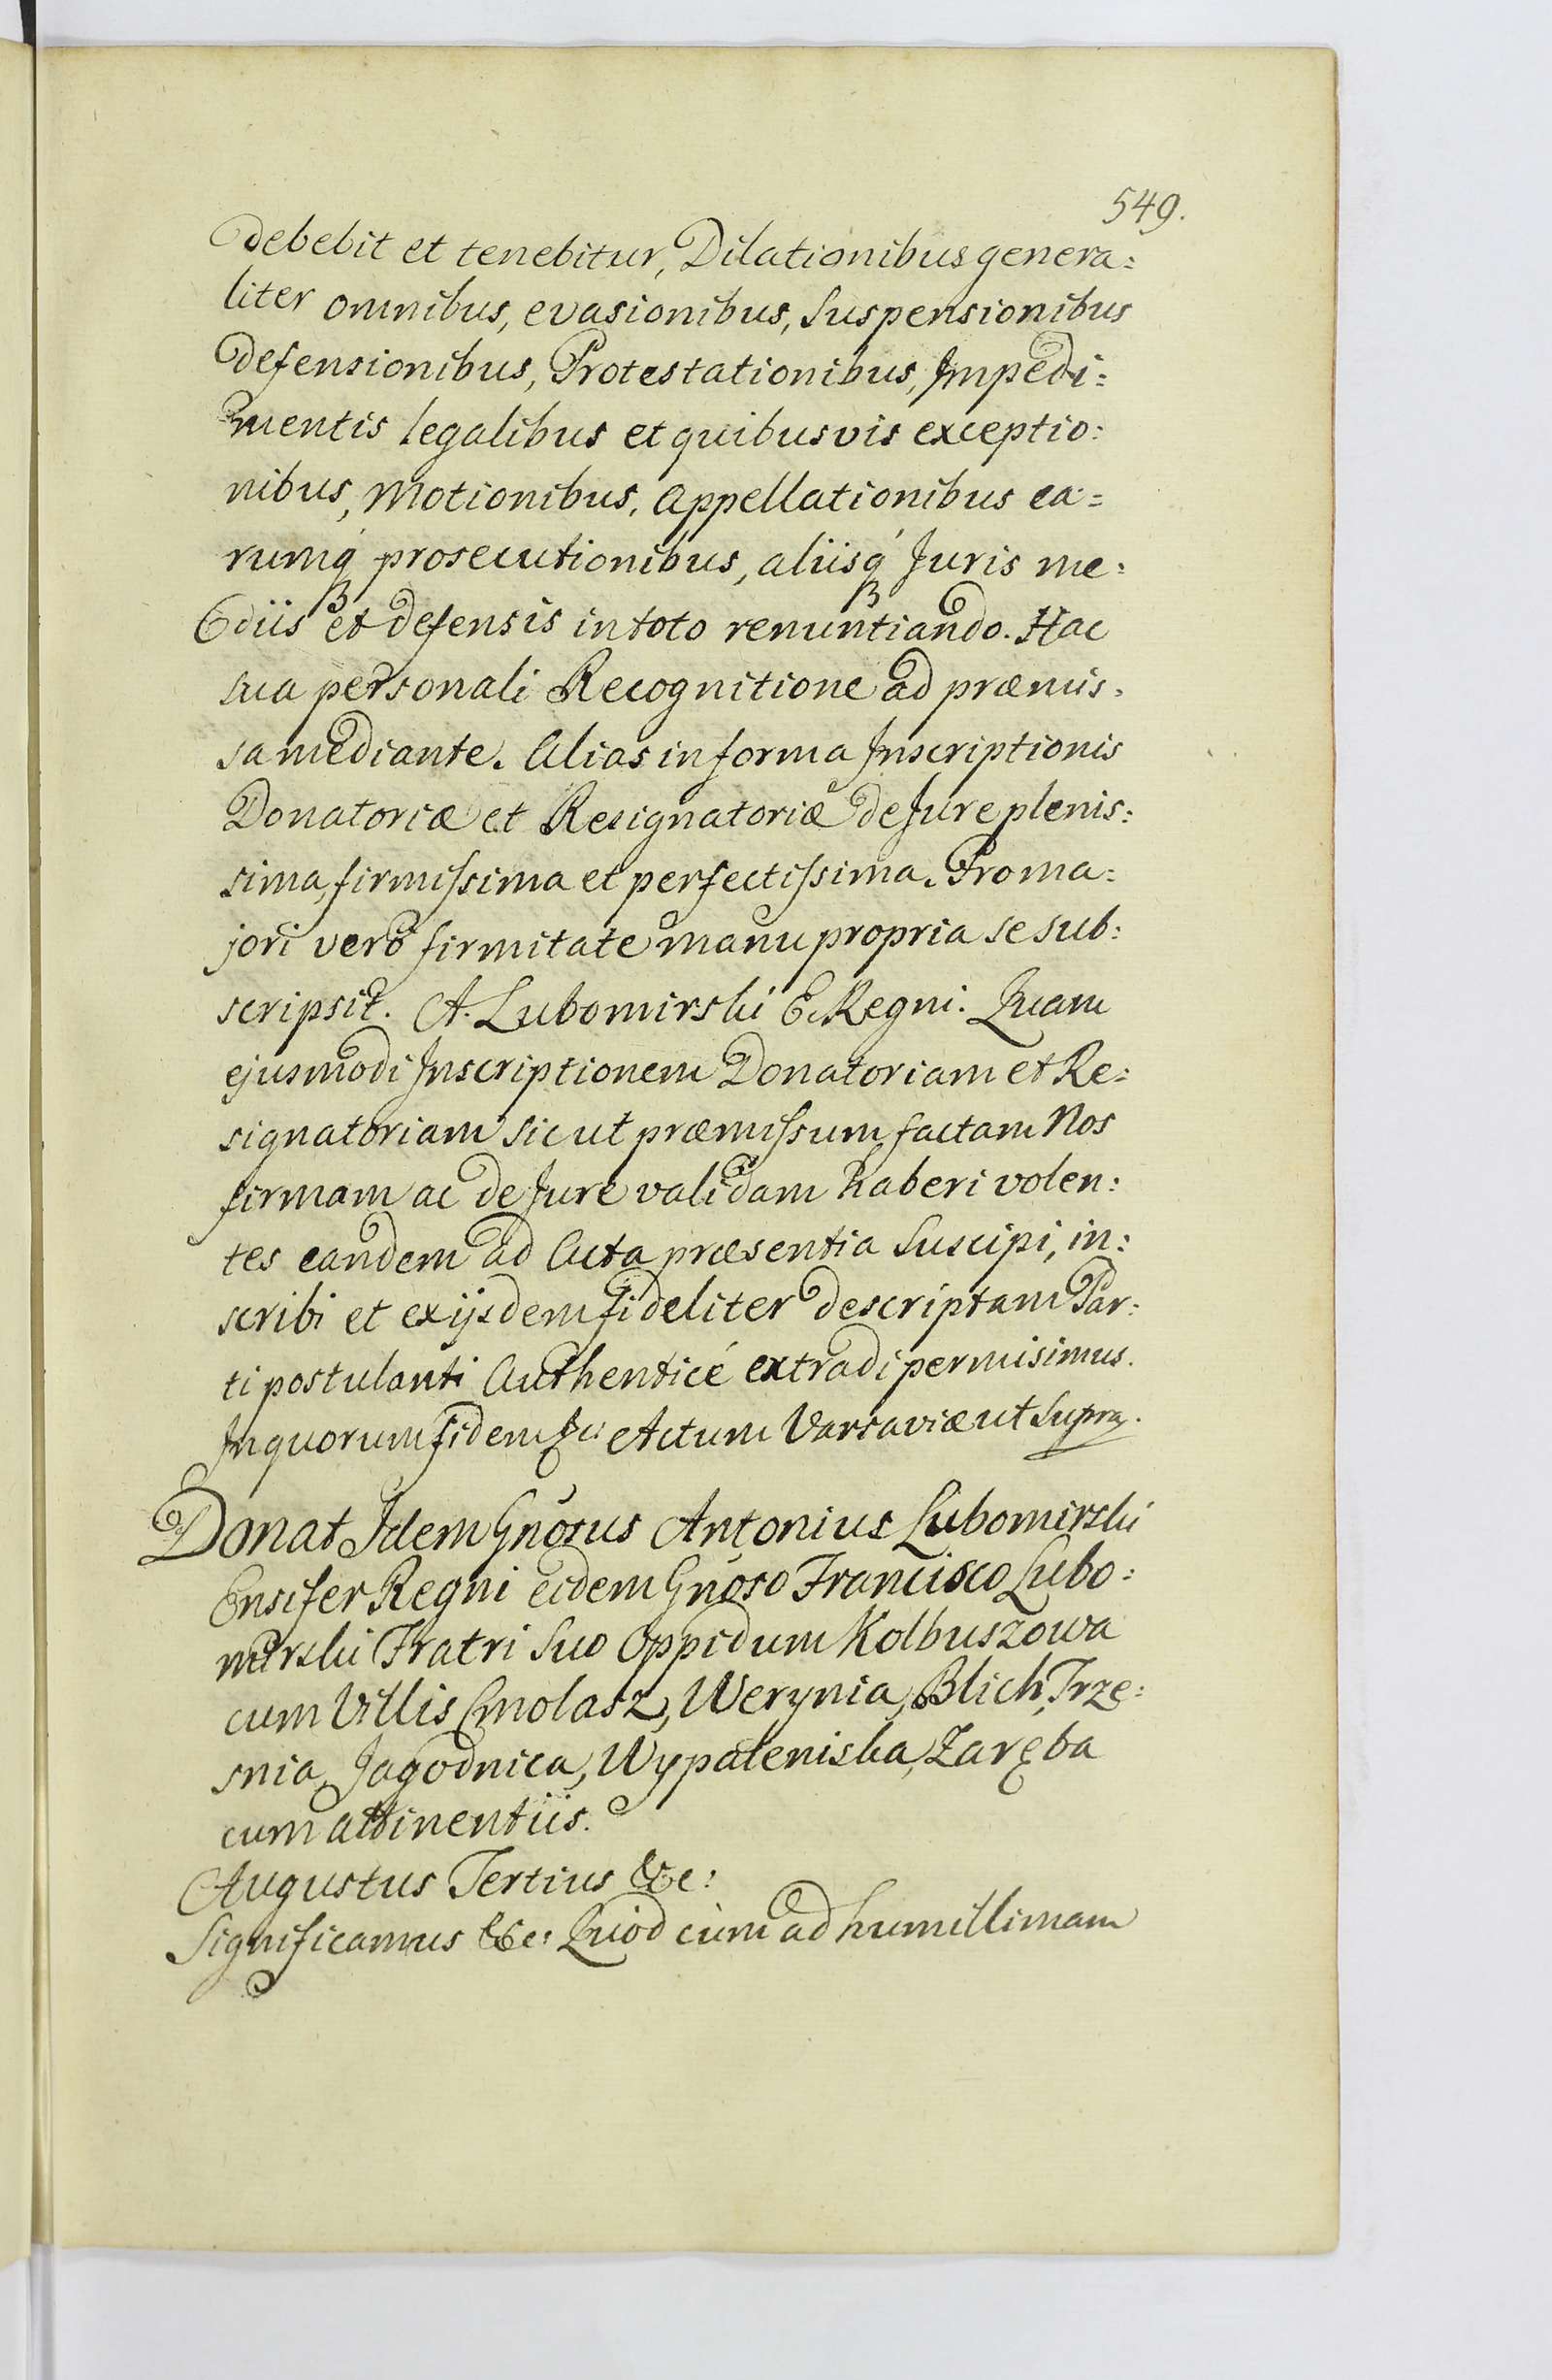 549.
debebit et tenebitur, Dilationibus genera:
liter omnibus, evasionibus, Suspensionibus
defensionibus, Protestationibus, Impedi:
mentis legalibus et quibusvis exceptio:
nibus, Motionibus, Appellationibus ea:
rumq́ prosecutionibus, aliisq́ Juris me:
diis et defensis in toto renuntiando. Hac
sua personali Recognitione ad præmis:
sa mediante. Alias in forma Inscriptionis
Donatoriæ et Resignatoriæ de Jure plenis:
sima, firmissima et perfectissima. Pro ma:
jori vero firmitate manu propria se sub:
scripsit. A. Lubomirski E. Regni. Quam
ejusmodi Inscriptionem Donatoriam et Re:
signatoriam sic ut præmissum factam Nos
firmam ac de Jure validam haberi volen:
tes eandem ad Acta præsentia Suscipi, in:
scribi et ex ijsdem fideliter descriptam Par:
ti postulanti Authenticé extradi permisimus.
In quorum fidem &c: Actum Varsaviæ ut Supra.
Donat Idem Gnősus Antonius Lubomirski
Ensifer Regni eidem Gnőso Francisco Lubo:
mirski Fratri Suo Oppidum Kolbuszowa
cum Villis Cmolasz, Werynia, Blich, Trze:
snia, Jagodnica, Wypaleniska, Zaręba
cum attinentiis.
Augustus Tertius &c:
Significamus &c: Quod cùm ad humillimam